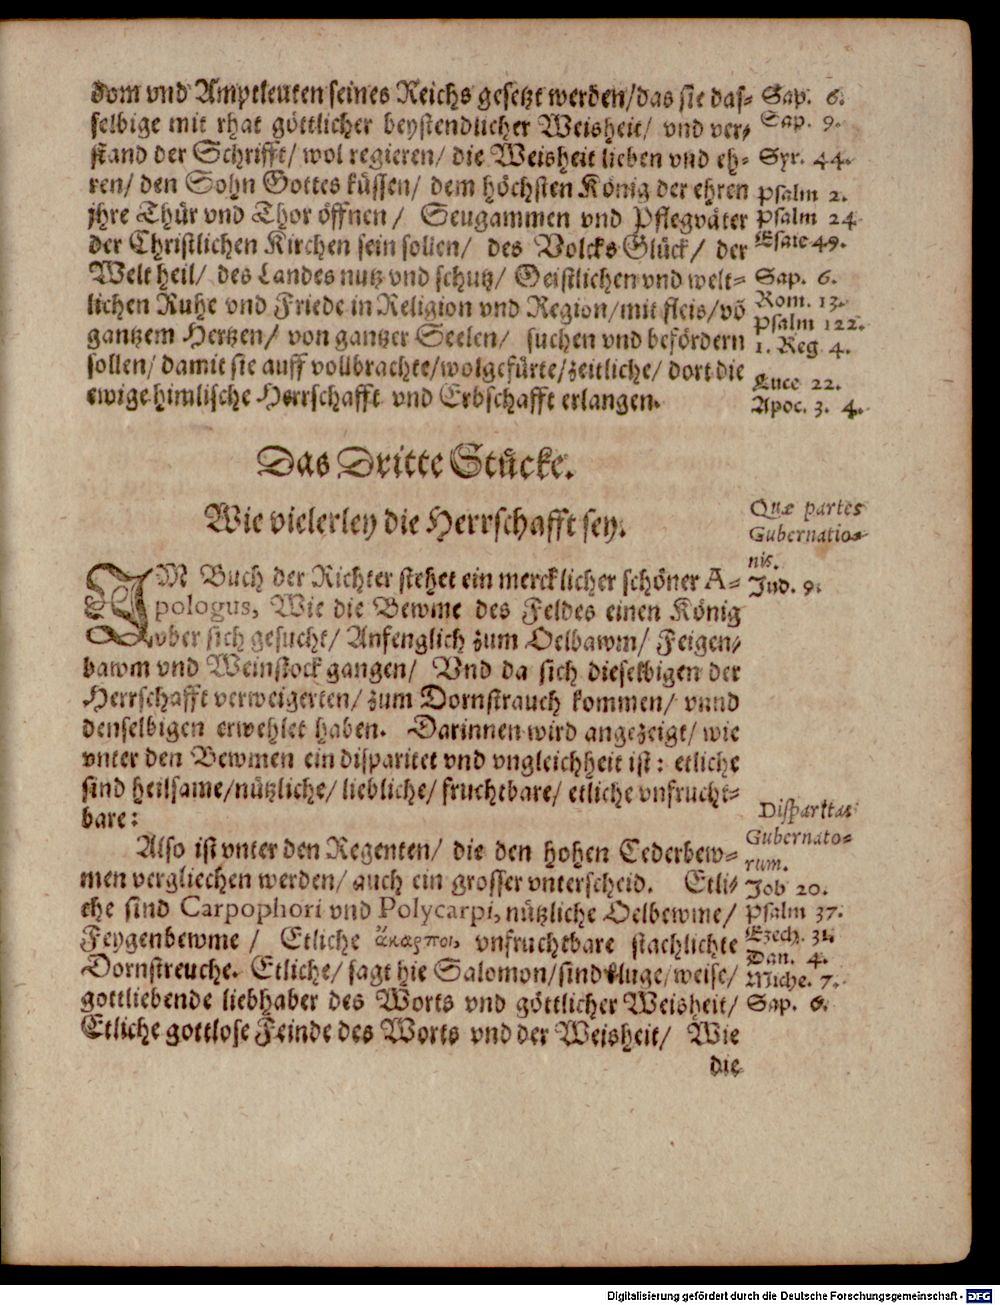 dom vnd Amptleuten seines Reichs gesetzt werden/das sie das-
selbige mit rhat göttlicher beystendlicher Weisheit/ vnd ver-
stand der Schrifft/ wol regieren/ die Weisheit lieben vnd eh-
ren/ den Sohn Gottes küssen/ dem höchsten König der ehren
jhre Thür vnd Thor öffnen/ Seugammen vnd Pflegväter
der Christlichen Kirchen sein sollen/ des Volcks Glück/ der
Welt heil/ des Landes nutz vnd schutz/ Geistlichen vnd welt-
lichen Ruhe vnd Friede in Religion vnd Region/mit fleis/vō
gantzem Hertzen/ von gantzer Seelen/ suchen vnd befördern
sollen/ damit sie auff vollbrachte/wolgefürte/zeitliche/ dort die
ewige himlische Herrschafft vnd Erbschafft erlangen.
Sap. 6.
Sap. 9.
Syr. 44.
Psalm 2.
Psalm 24
Esaie 49.
Sap. 6.
Rom. 13.
Psalm 122.
1. Reg 4.
Luce 22.
Apoc. 3. 4.
Das Dritte Stücke.
Wie vielerley die Herrschafft sey.
Quæ partes
Gubernatio-
nis.
Jud. 9.
IM Buch der Richter stehet ein mercklicher schöner A-
pologus, Wie die Bewme des Feldes einen König
vber sich gesucht/ Anfenglich zum Oelbawm/ Feigen-
bawm vnd Weinstock gangen/ Vnd da sich dieselbigen der
Herrschafft verweigerten/ zum Dornstrauch kommen/ vnnd
denselbigen erwehlet haben. Darinnen wird angezeigt/ wie
vnter den Bewmen ein disparitet vnd vngleichheit ist: etliche
sind heilsame/nützliche/ liebliche/ fruchtbare/ etliche vnfrucht-
bare:
Also ist vnter den Regenten/ die den hohen Cederbew-
men vergliechen werden/ auch ein grosser vnterscheid. Etli-
che sind Carpophori vnd Polycarpi, nützliche Oelbewme/
Feygenbewme / Etliche ἄκαρποι, vnfruchtbare stachlichte
Dornstreuche. Etliche/ sagt hie Salomon/sind kluge/weise/
gottliebende liebhaber des Worts vnd göttlicher Weisheit/
Etliche gottlose Feinde des Worts vnd der Weisheit/ Wie
die
Disparitas
Gubernato-
rum.
Job 20.
Psalm 37.
Ezech. 31.
Dan. 4.
Miche. 7.
Sap. 6.
Digitalisierung gefördert durch die Deutsche Forschungsgemeinschaft - DFG